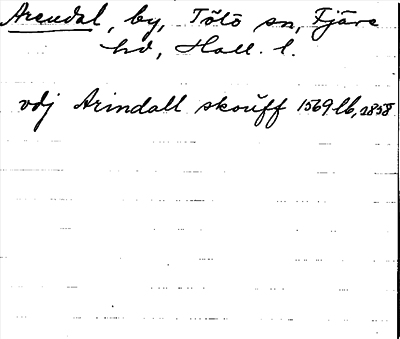 Arendal, by, Tölö sn, Fjäre
hd, Hall. l.
vdj Arindall skouff 1569 lb, 1858